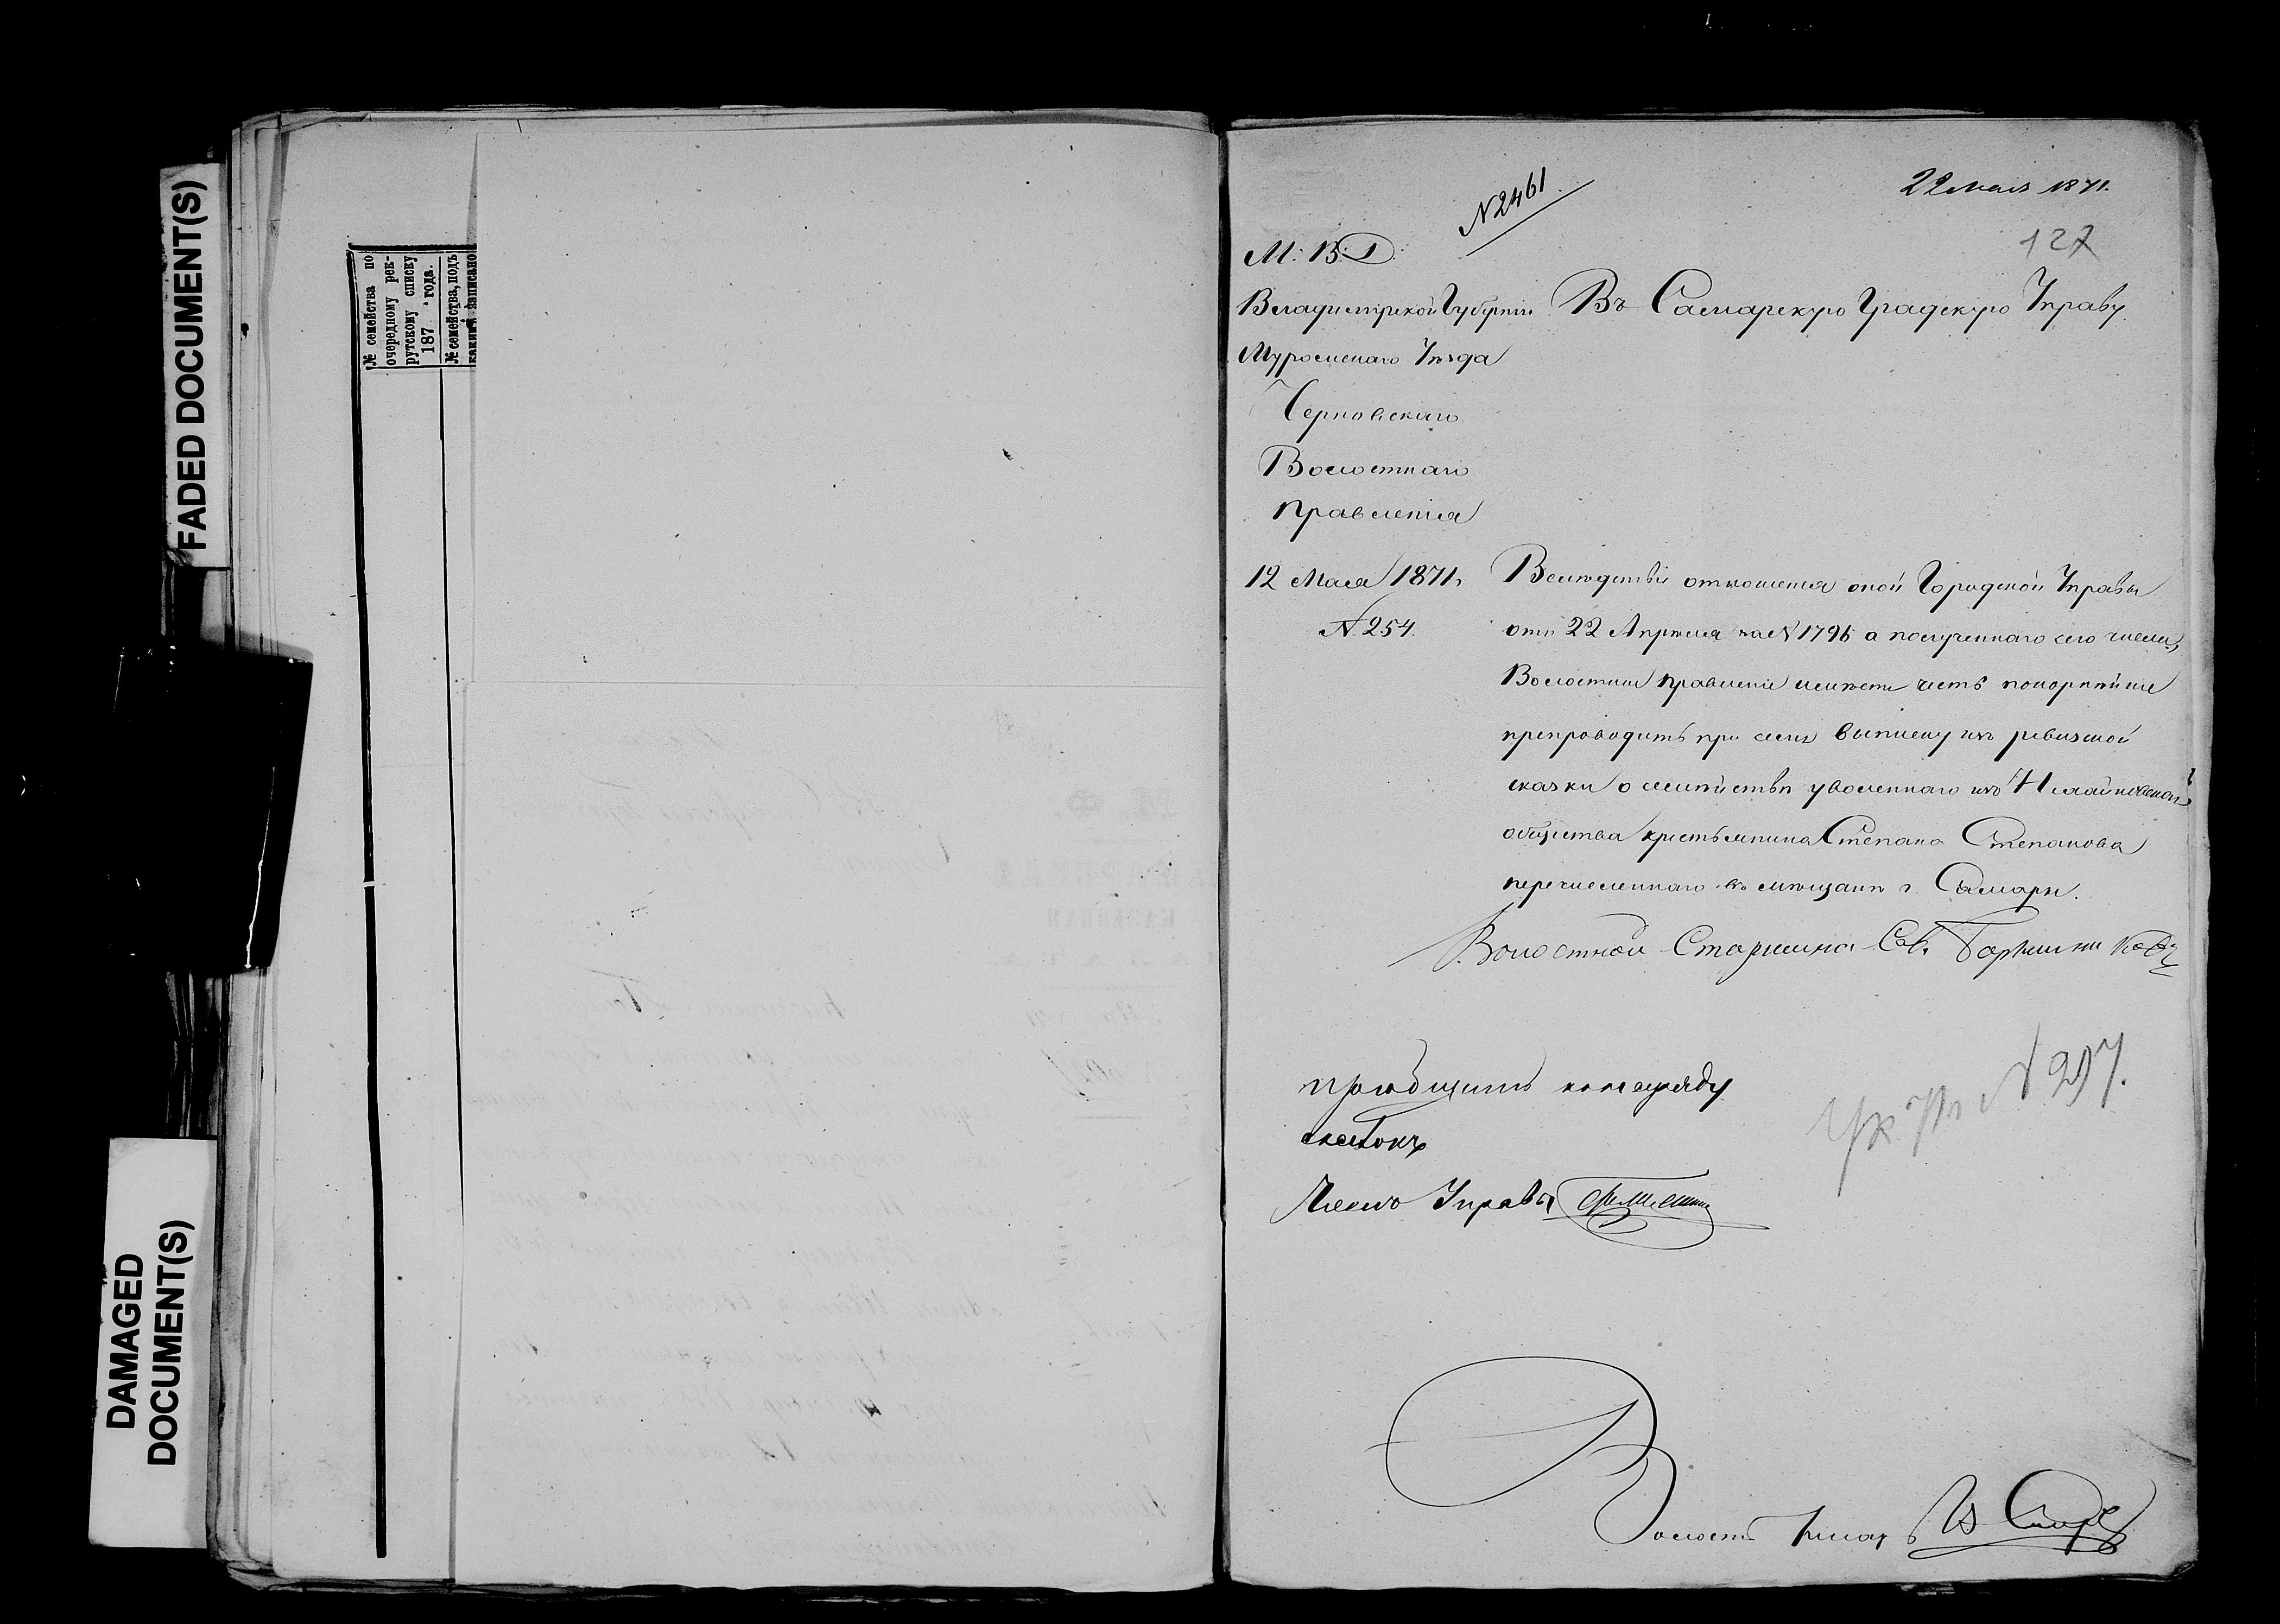 FADED DOCUMENT(S)
DAMAGED
DOCUMENT(S)
№ семейства по
очередному рек-
рутскому списку
187 года.
№ семейства, подъ
записано
22 мая 1871.
№ 2461
127
М: В: Д:
Владимірской Губерніи
Муромскаго Уѣзда
Черновскаго
Волостнаго
Правленія
12 Мая 1871 г.
№ 254.
Въ Самарскую Градскую Управу
Вслѣдствіе отношенія оной Городской Управы
отъ 22 Апрѣля за № 1796 а полученнаго сего числа,
Волостное Правленіе имѣетъ честь покорнѣйше
препроводить при семъ выписку изъ ревизской
сказки о семействѣ уволеннаго изъ
общества крестьянина Степана Степанова
перечисленнаго въ мѣщане г. Самары.
Волостной Старшина
пріобщить къ наряду
сказокъ
Членъ Управы
№ 297.
Волост Писарь